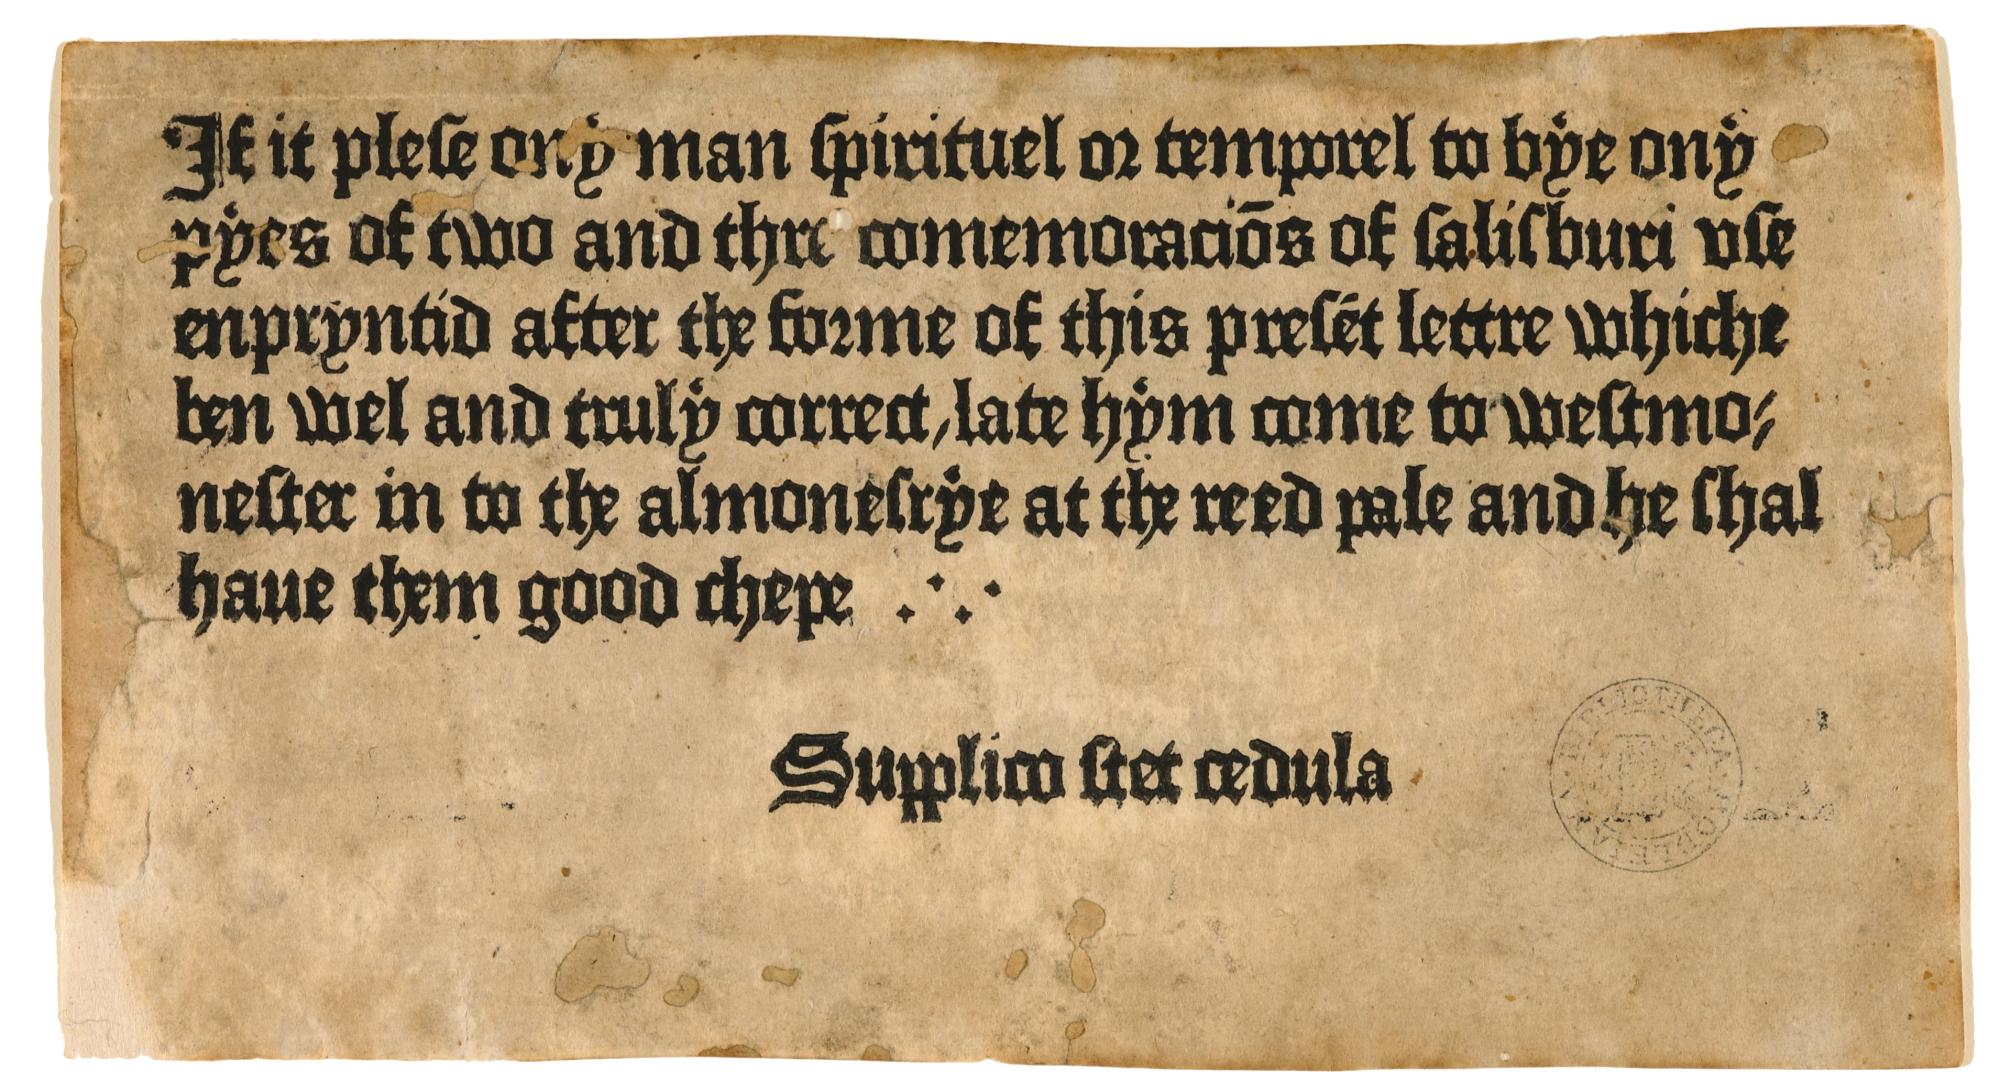 If it plese ony man spirituel or temporel to bye ony
pyes of two and thre comemoraciõs of salisburi vse
enpryntid after the forme of this presẽt lettre whiche
ben wel and truly correct, late hym come to westmo⸗
nester in to the almonesrye at the reed pale and he shal
haue them good chepe
Supplico stet cedula
BIBLIOTHECA BODLEIANA